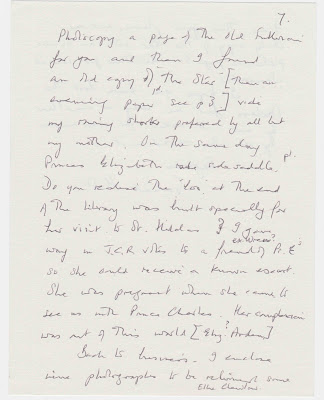 7.
Photocopy a page of the old
for you and then I found
an old copy of "The Star" [then an
evening paper see p 3.] vide
my rowing shorts preferred by all but
my mother. On the same day
Princess Elizabeth rode sidesaddle.
Do you realise the "loo" at the end
of the library was built specially for
her visit to St. Hilda's & I gave
way in J.C.R. to a friend of P. E's
so she could receive a known escort.
She was pregnant when she came to
see us with Prince Charles. Her complexion
was out of this world [Eliz. Arden?]
Back to business. I enclose
some photographs to be returned some